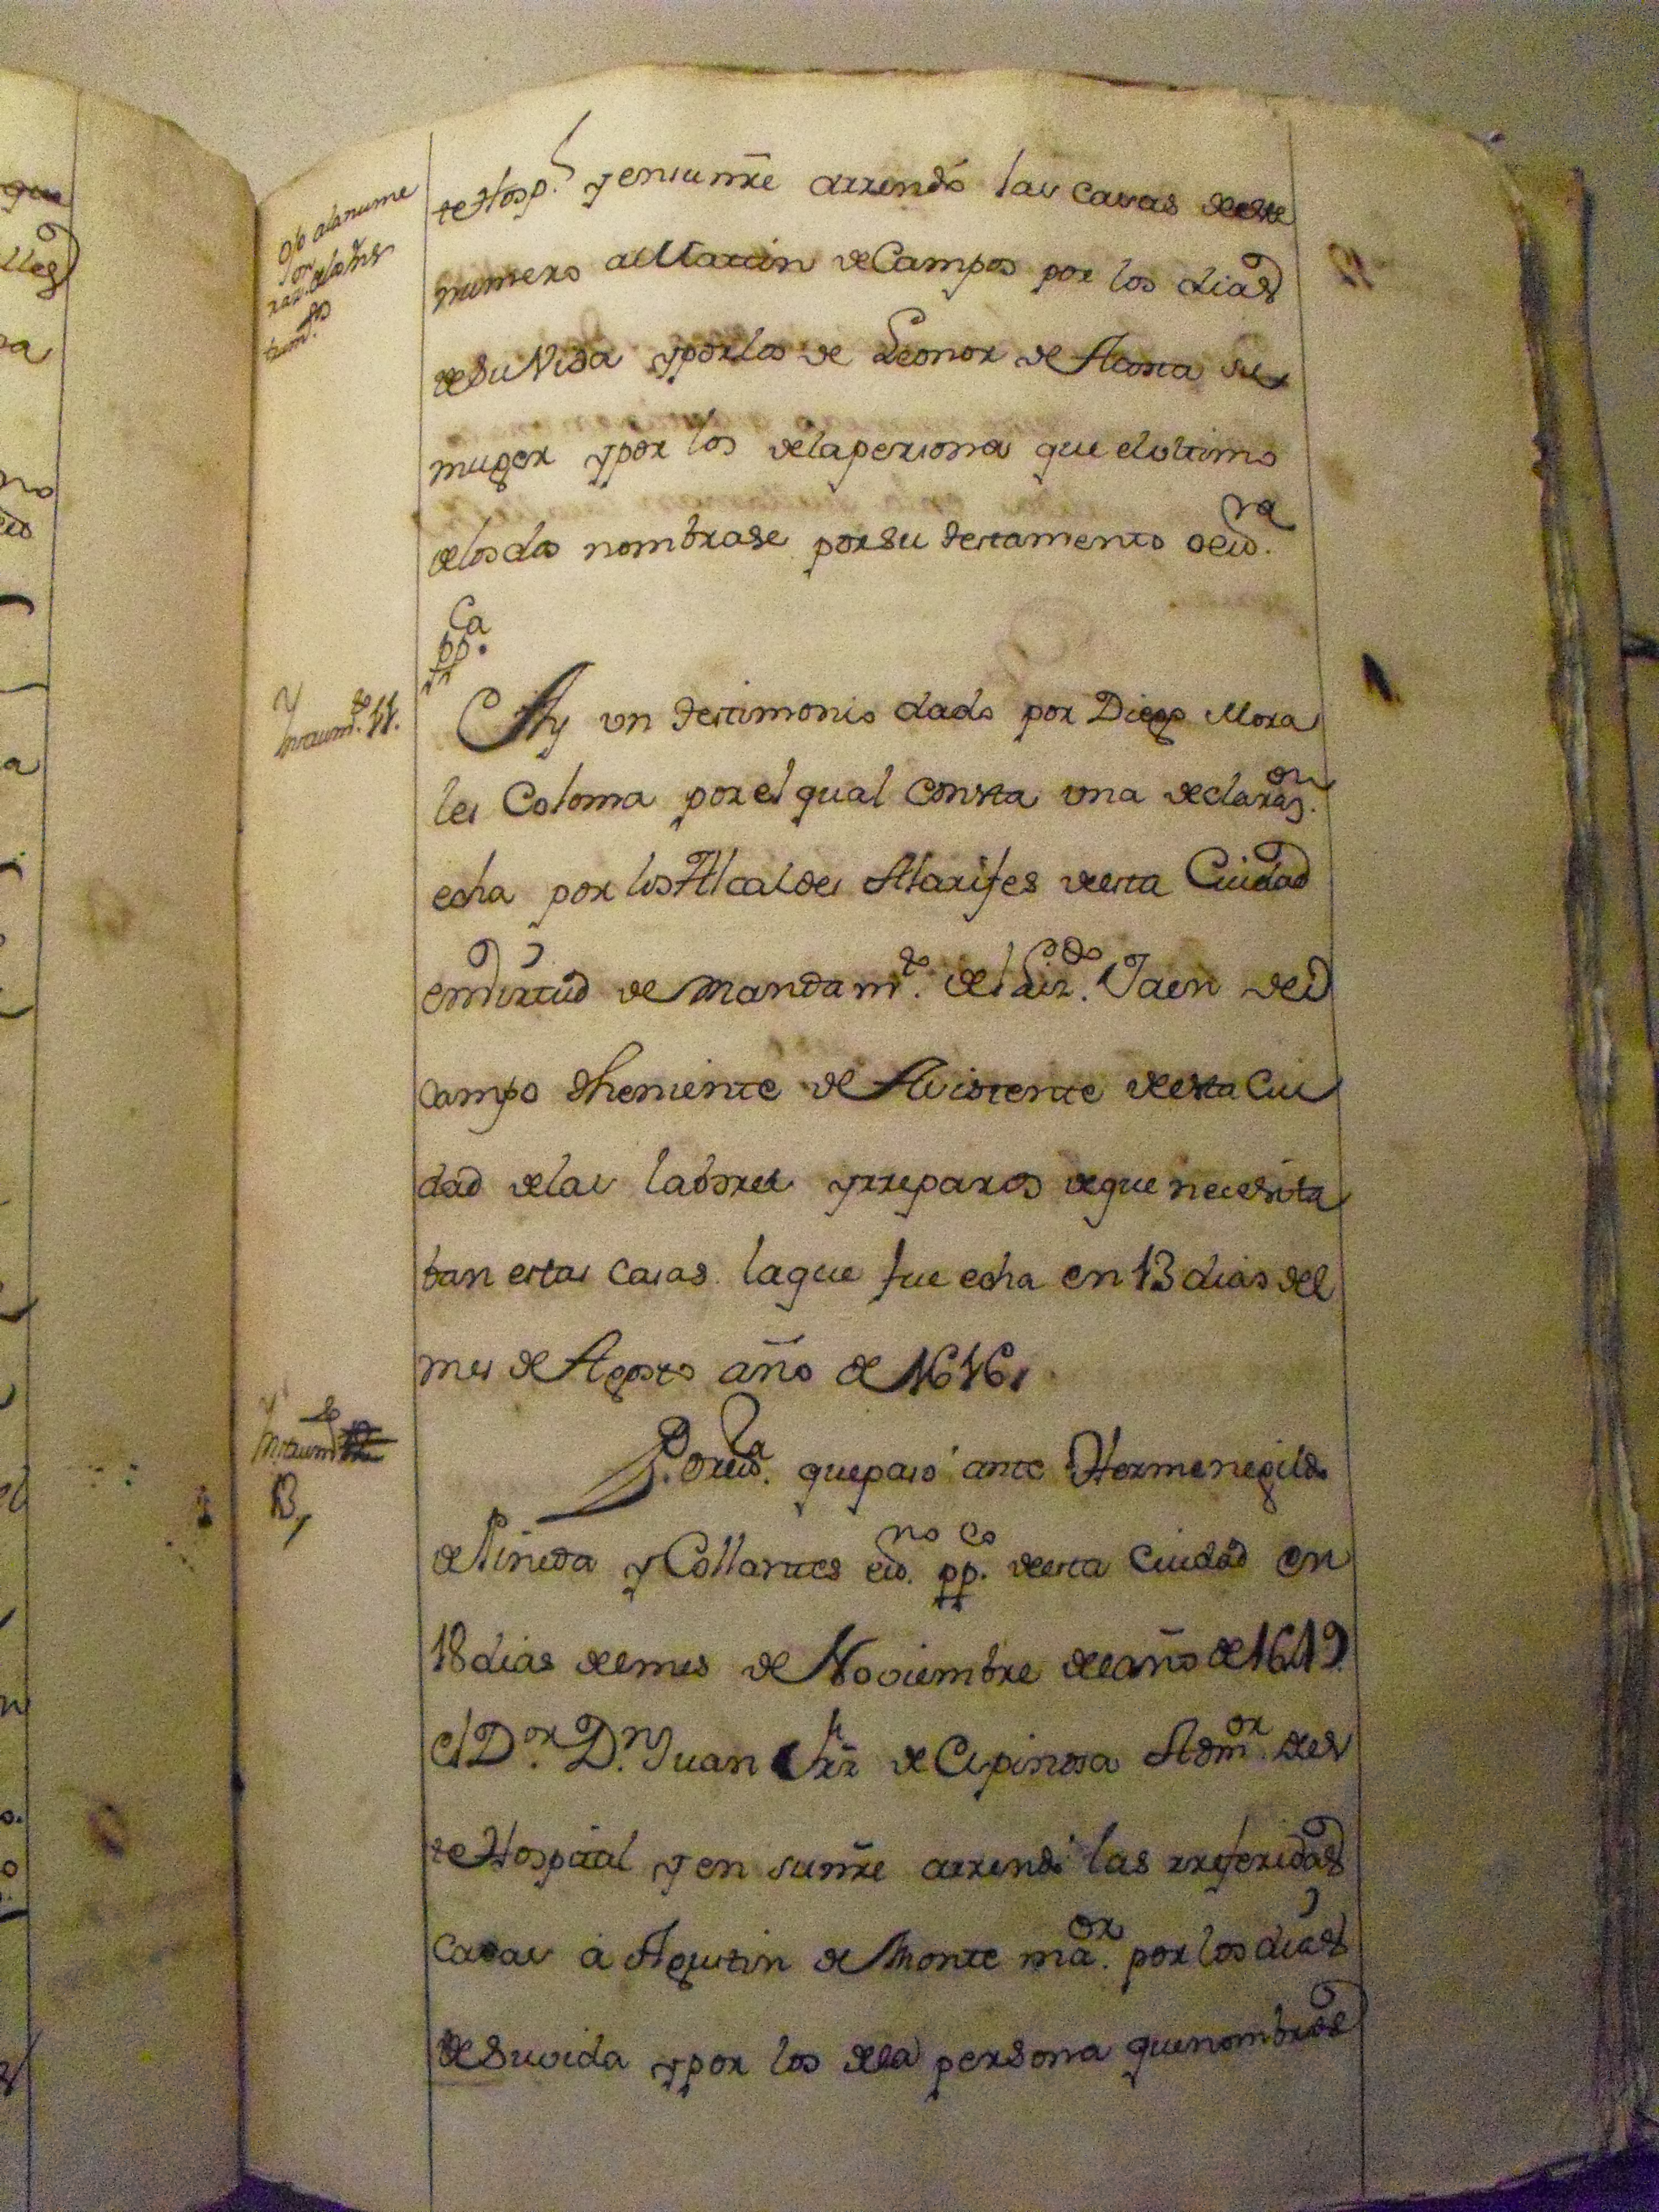 te Hosp.l y en su nr̃e arrendó las casas deste
numero a Martin de Campos por los dias
de su Vida y por los de Leonor de Acosta su
muger y por los de la persona que el ultimo
de los dos nombrase por su testamento o es.ra
pp.ca
Instrum.to 11.
Ay un testimonio dado por Diego Mora
les Coloma por el qual consta una declaraz.on
echa por los Alcaldes Alarifes desta Ciudad
en virtud de mandam.to del Liz.do Jaen del
campo theniente de Asistente desta Ciu
dad de las labores y rreparos de que necesita
ban estas casas. la que fue echa en 13 dias del
mes de Agosto año de 1616,
Instrum.to
13,
Por es.ra que pasó ante Hermenegildo
de Pineda y Collantes es.no pp.co desta Ciudad en
18 dias del mes de Noviembre del año de 1619
el D.or D.n Juan de Espinosa Adm.or des
te Hospital y en su nr̃e arrendó las rreferidas
casas á Agustin de Monte ma.or por los dias
de su vida y por los de la persona que nombrase